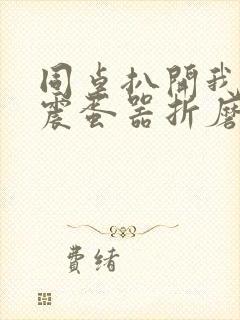 同桌扒開我
震蛋器折磨
費緒